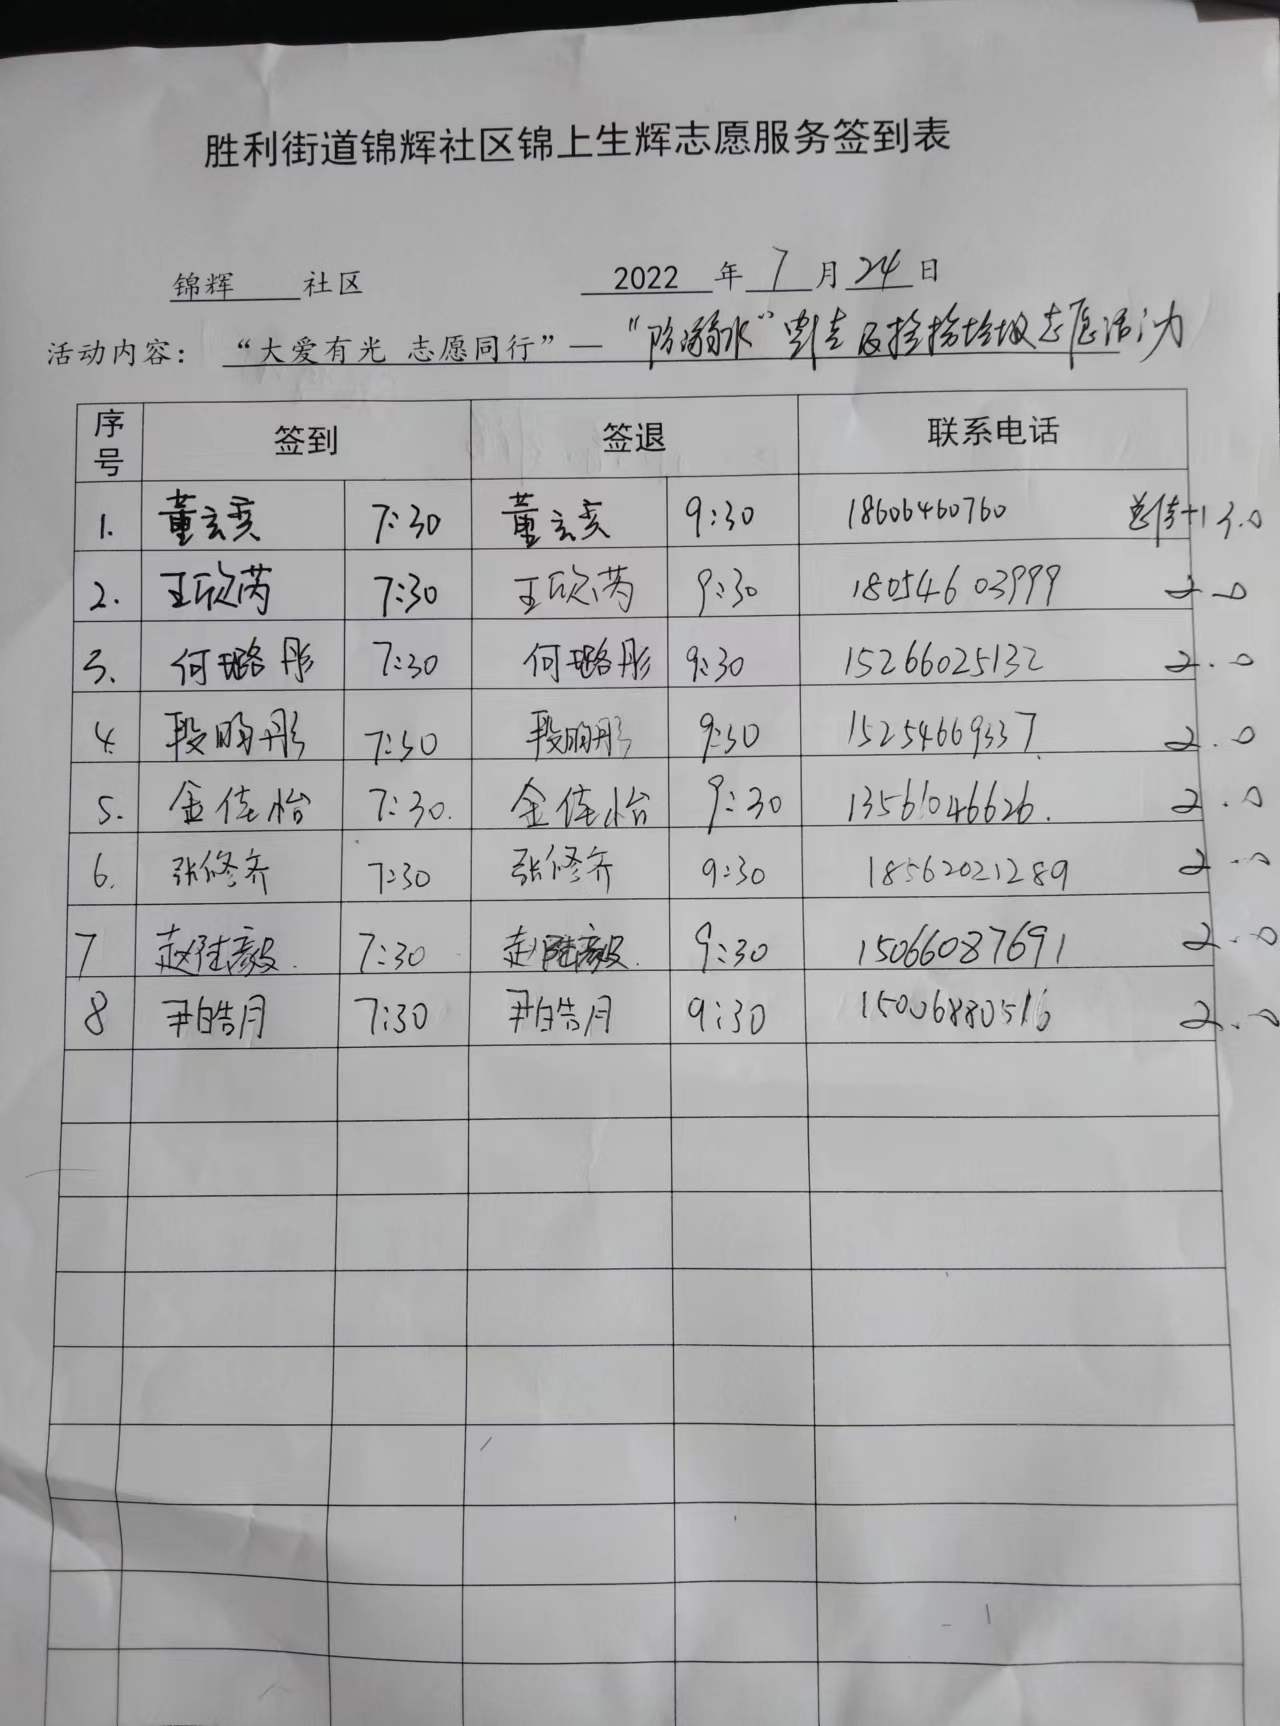 胜利街道锦辉社区锦上生辉志愿服务签到表
锦辉 社区 2022 年 7 月 24 日
活动内容： “大爱有光 志愿同行”— “防溺水” 及捡拾垃圾志愿活动
序号 签到 签退 联系电话
1. 董玄奕 7:30 董玄奕 9:30 18606460760 +1 3.0
2. 王欣芮 7:30 王欣芮 9:30 18054603999 2.0
3. 何璐彤 7:30 何璐彤 9:30 15266025132 2.0
4. 段昀彤 7:30 段昀彤 9:30 15254669337. 2.0
5. 金佳怡 7:30. 金佳怡 9:30 13561046626. 2.0
6. 张修齐 7:30 张修齐 9:30 18562021289 2.0
7 赵陆毅. 7:30 赵陆毅. 9:30 15066087691 2.0
8 尹皓月 7:30 尹皓月 9:30 15006880516 2.0